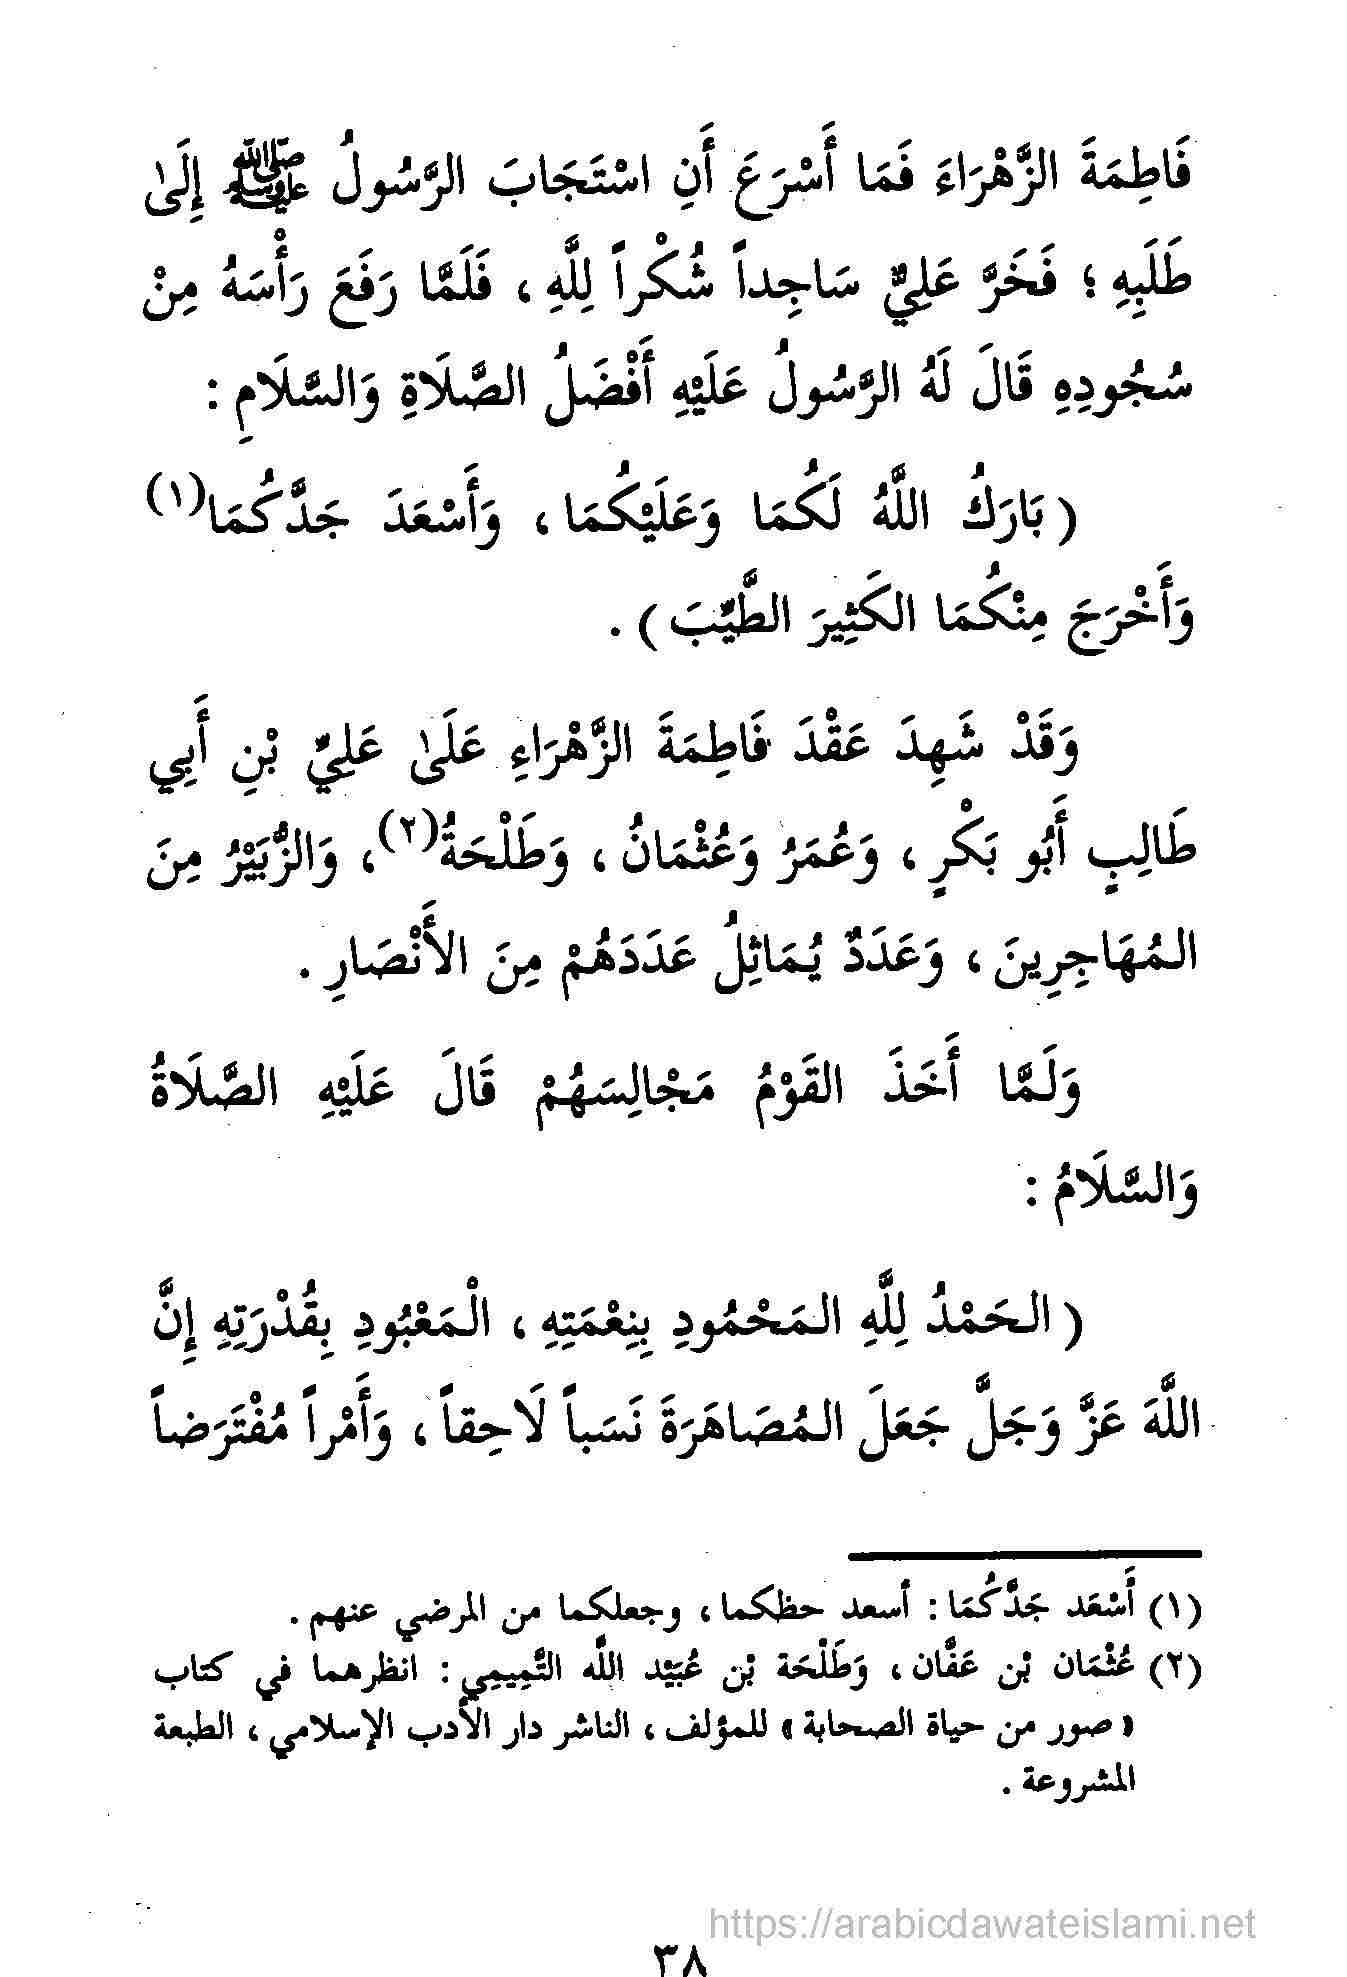 فَاطِمَةَ الزَّهْرَاءَ فَمَا أَسْرَعَ أَنِ اسْتَجَابَ الرَّسُولُ ﷺ إِلَىٰ
طَلَبِهِ ؛ فَخَرَّ عَلِيٌّ سَاجِداً شُكْراً لِلَّهِ ، فَلَمَّا رَفَعَ رَأْسَهُ مِنْ
سُجُودِهِ قَالَ لَهُ الرَّسُولُ عَلَيْهِ أَفْضَلُ الصَّلَاةِ وَالسَّلَامِ :
( بَارَكُ اللَّهُ لَكُمَا وَعَلَيْكُمَا ، وَأَسْعَدَ جَدَّكُمَا(١)
وَأَخْرَجَ مِنْكُمَا الكَثِيرَ الطَّيِّبَ ) .
وَقَدْ شَهِدَ عَقْدَ فَاطِمَةَ الزَّهْرَاءِ عَلَىٰ عَلِيِّ بْنِ أَبِي
طَالِبٍ أَبُو بَكْرٍ ، وَعُمَرُ وَعُثْمَانُ ، وَطَلْحَةُ(٢) ، وَالزُّبَيْرُ مِنَ
المُهَاجِرِينَ ، وَعَدَدٌ يُمَاثِلُ عَدَدَهُمْ مِنَ الأَنْصَارِ .
وَلَمَّا أَخَذَ القَوْمُ مَجْالِسَهُمْ قَالَ عَلَيْهِ الصَّلَاةُ
وَالسَّلَامُ :
( الحَمْدُ لِلَّهِ المَحْمُودِ بِنِعْمَتِهِ ، الْمَعْبُودِ بِقُدْرَتِهِ إِنَّ
اللَّهَ عَزَّ وَجَلَّ جَعَلَ المُصَاهَرَةَ نَسَباً لَاحِقاً ، وَأَمْراً مُفْتَرَضاً
(١) أَسْعَد جَدَّكُمَا : أسعد حظكما ، وجعلكما من المرضي عنهم .
(٢) عُثْمَان بْن عَفَّان ، وَطَلْحَة بْن عُبَيْد اللَّه التَّمِيمِي : انظرهما في كتاب
« صور من حياة الصحابة » للمؤلف ، الناشر دار الأدب الإسلامي ، الطبعة
المشروعة .
https://arabicdawateislami.net
٣٨